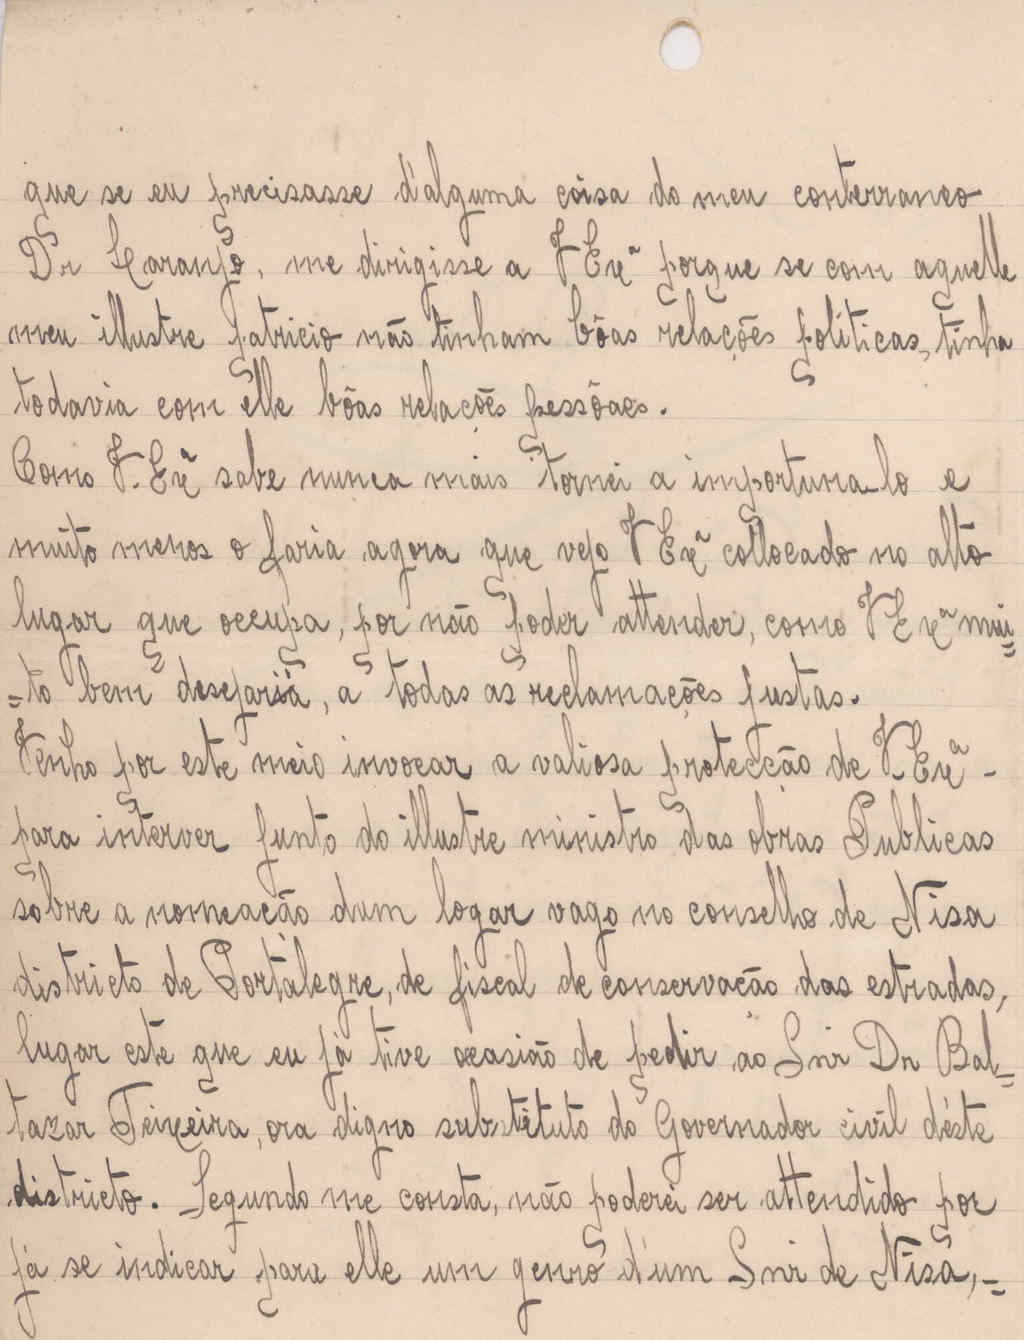 que se eu precisasse d'alguma côisa do meu conterraneo
Dr Laranjo, me dirigisse a V Exª porque se com aquelle
meu illustre patricio não tinham bôas relações politicas, tinha
todavia com elle bôas relações pessôaes.
Como V. Exª sabe nunca mais tornei a importuna-lo e
muito menos o faria agora que vejo V Exª collocado no alto
lugar que occupa, por não poder attender, como V Exª mui=
=to bem desejaria, a todas as reclamações justas.
Venho por este meio invocar a valiosa protecção de V. Exª -
para interver junto do illustre ministro das obras Publicas
sobre a nomeação dum logar vago no conselho de Nisa
districto de Portalegre, de fiscal de conservação das estradas,
lugar este que eu já tive ocasião de pedir ao Snr Dr Bal=
tazar Teixeira, ora digno substituto do Governador civil d'éste
districto. Segundo me consta, não poderei ser attendido por
já se indicar para elle um genro d'um Snr de Nisa,=